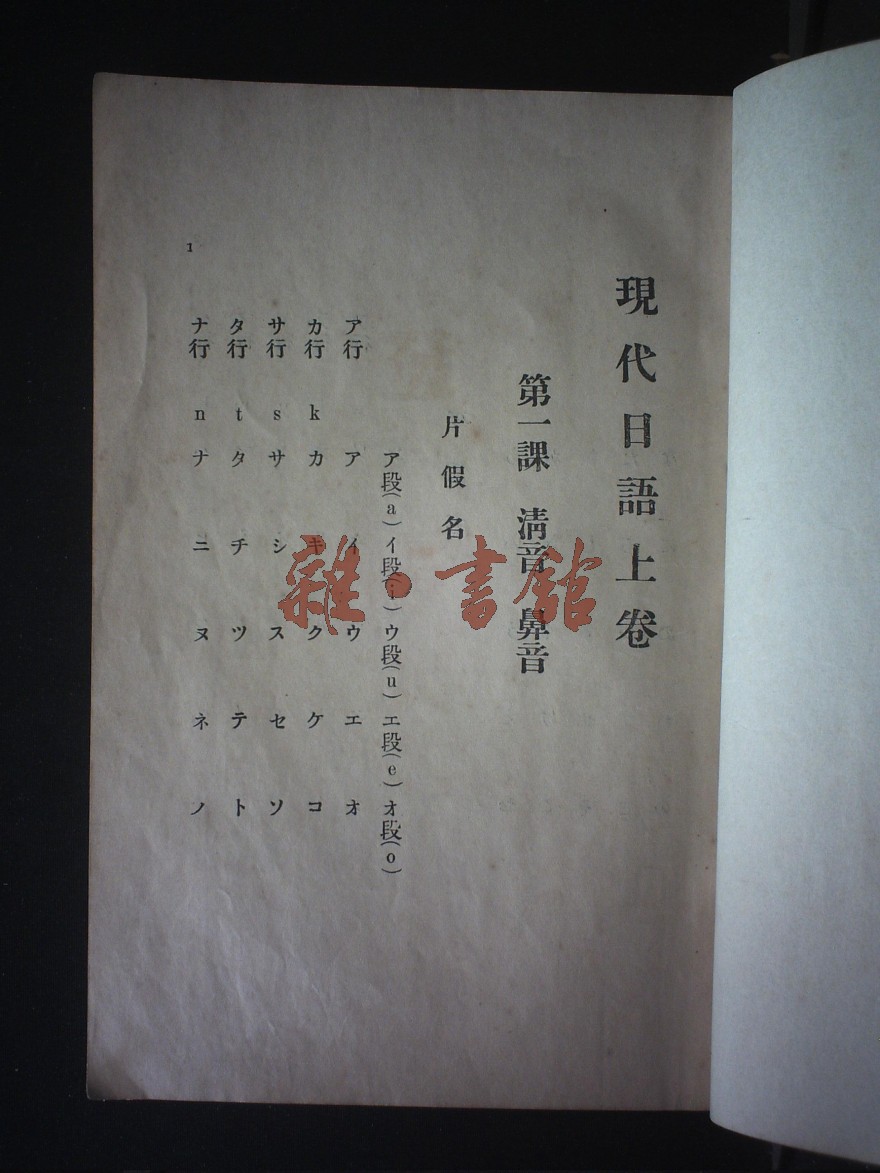 現代日語上卷
第一課 淸音 鼻音
片假名
ア段(a)イ段(i)ウ段(u)エ段(e)オ段(o)
ア行 ア イ ウ エ オ
カ行 k カ キ ク ケ コ
サ行 s サ シ ス セ ソ
タ行 t タ チ ツ テ ト
ナ行 n ナ ニ ヌ ネ ノ
1
雜·書館